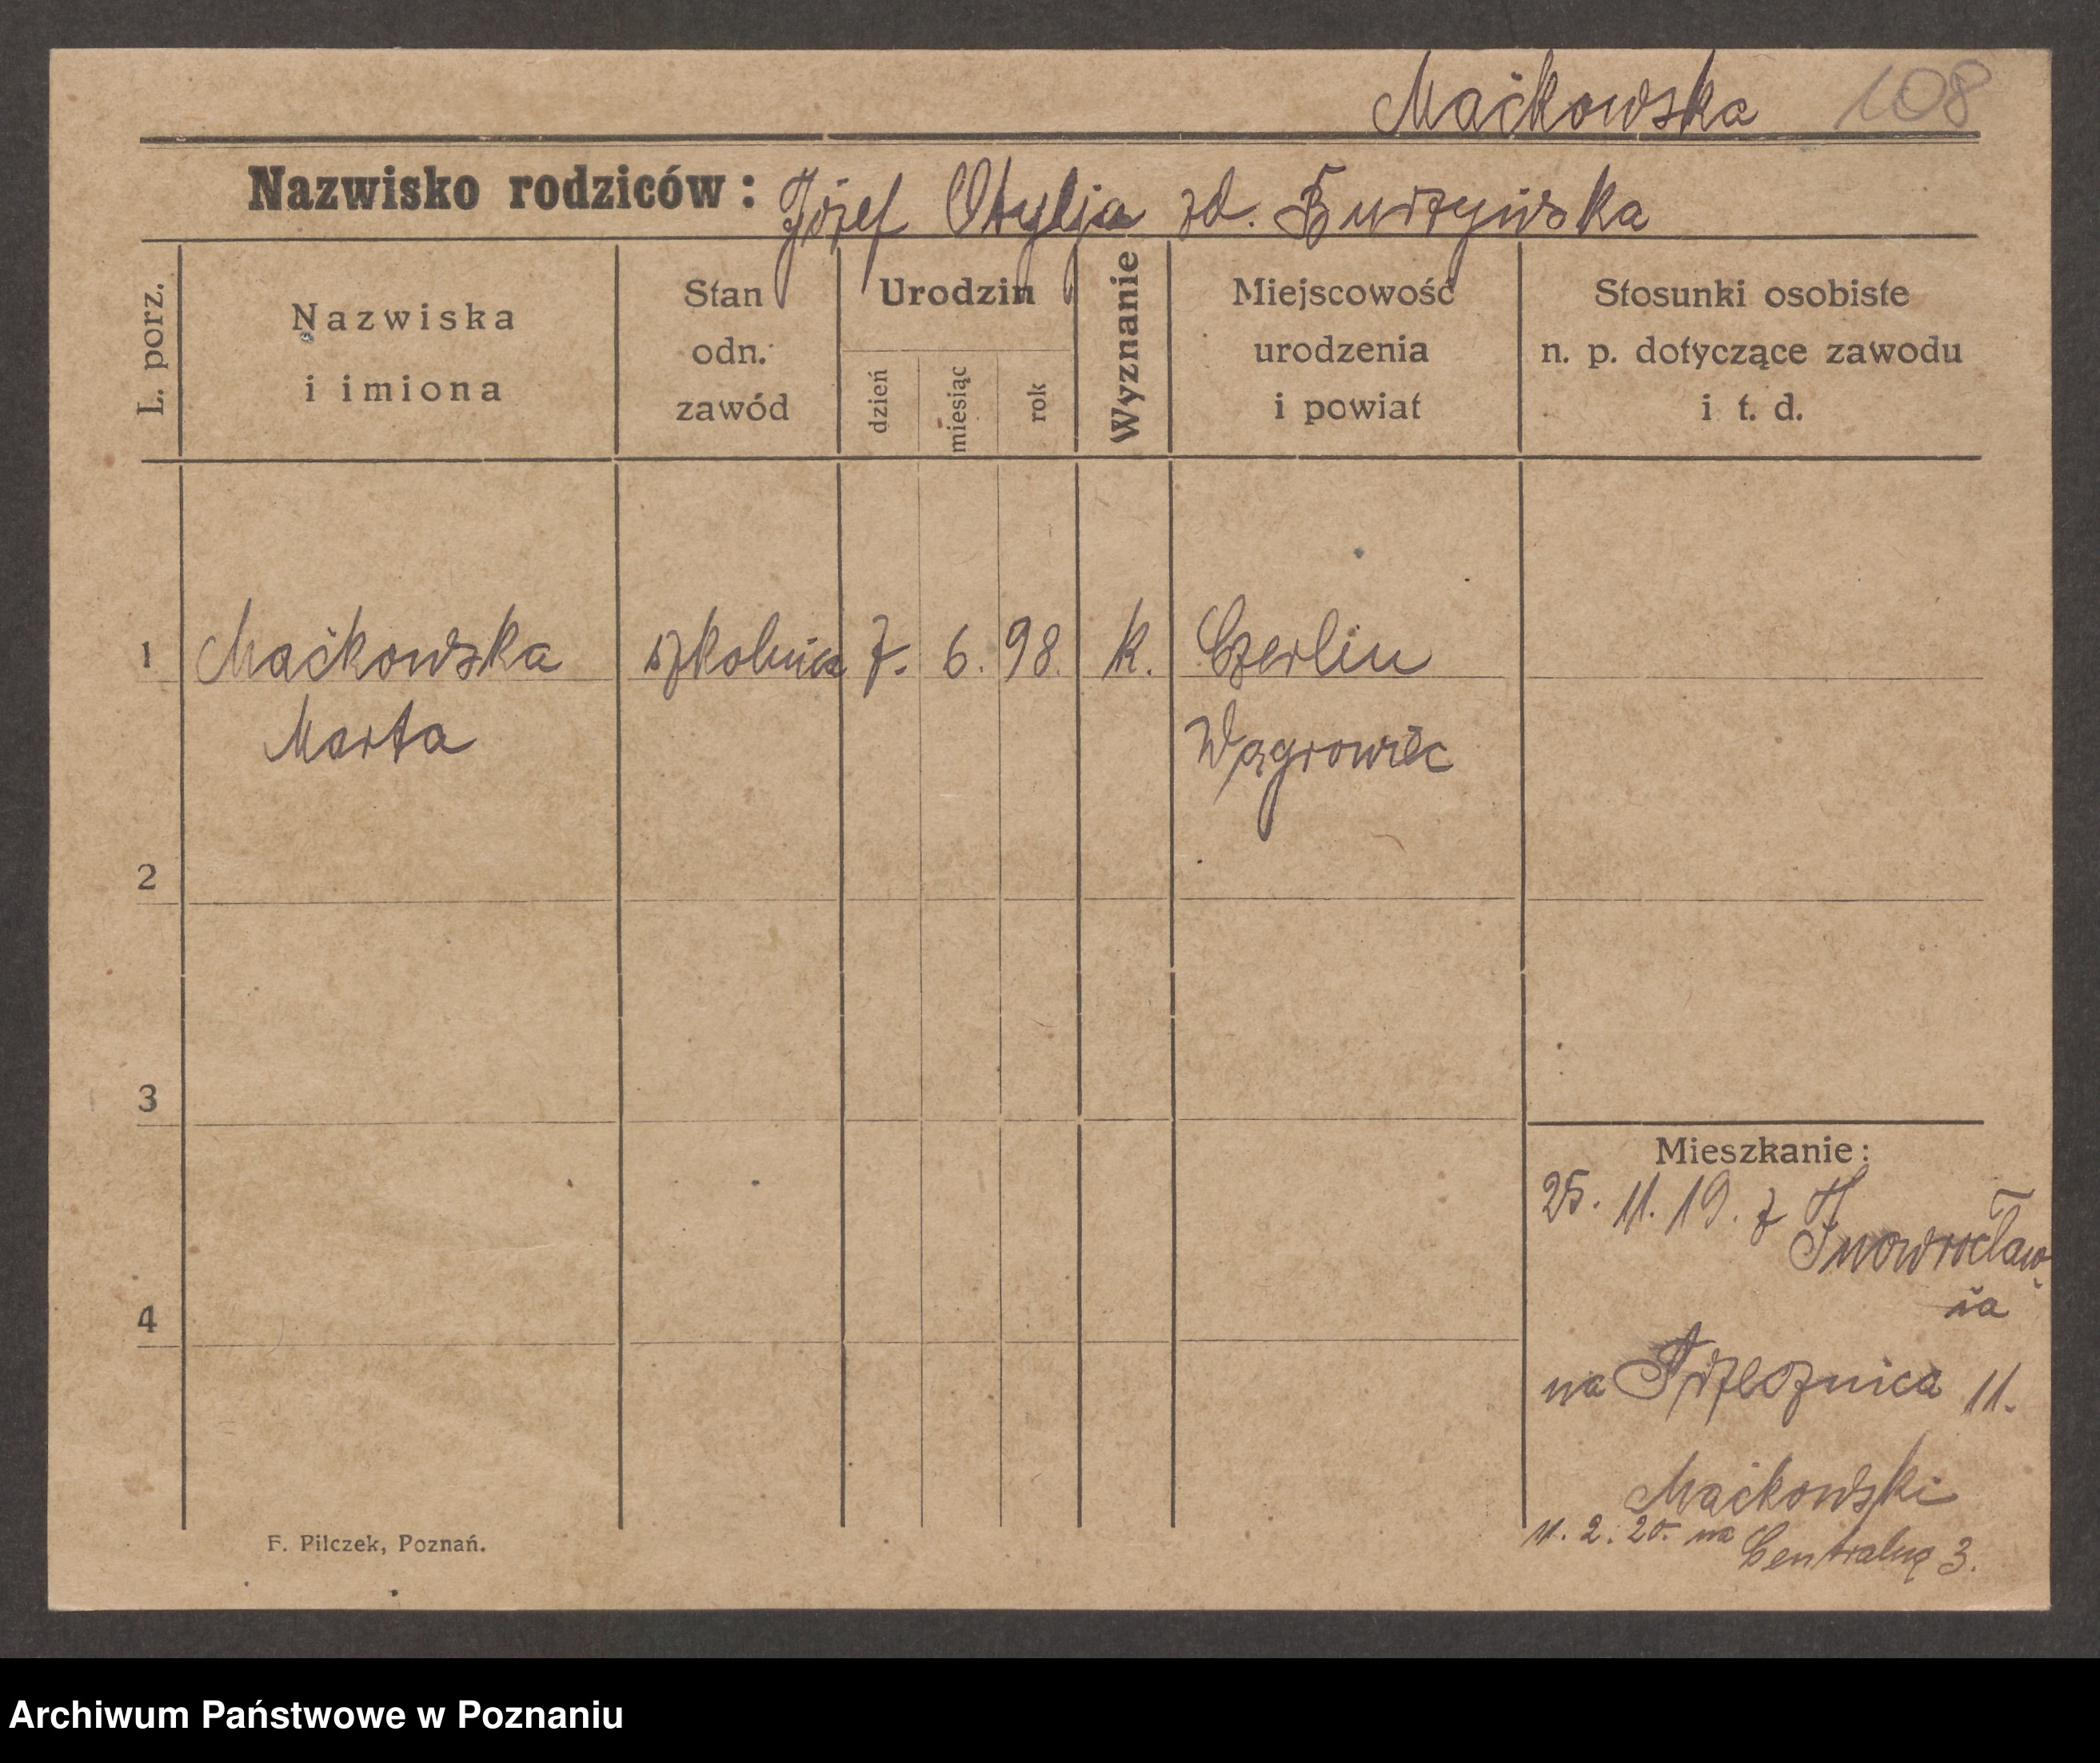 Maćkowska 108
Nazwisko rodziców: Józef Otylja zd. Burzyńska
L. porz.
Nazwiska
i imiona
Stan
odn.
zawód
Urodzin
dzień
miesiąc
rok
Wyznanie
Miejscowość
urodzenia
i powiat
Stosunki osobiste
n. p. dotyczące zawodu
i t. d.
1 Maćkowska szkolnica 7. 6. 98. k. Czerlin
Marta Wągrowiec
2
3
4
Mieszkanie:
25. 11. 19. z Inowrocław-
ia
na Trzecznica 11.
Maćkowski
11. 2. 20. na Centralną 3.
F. Pilczek, Poznań.
Archiwum Państwowe w Poznaniu